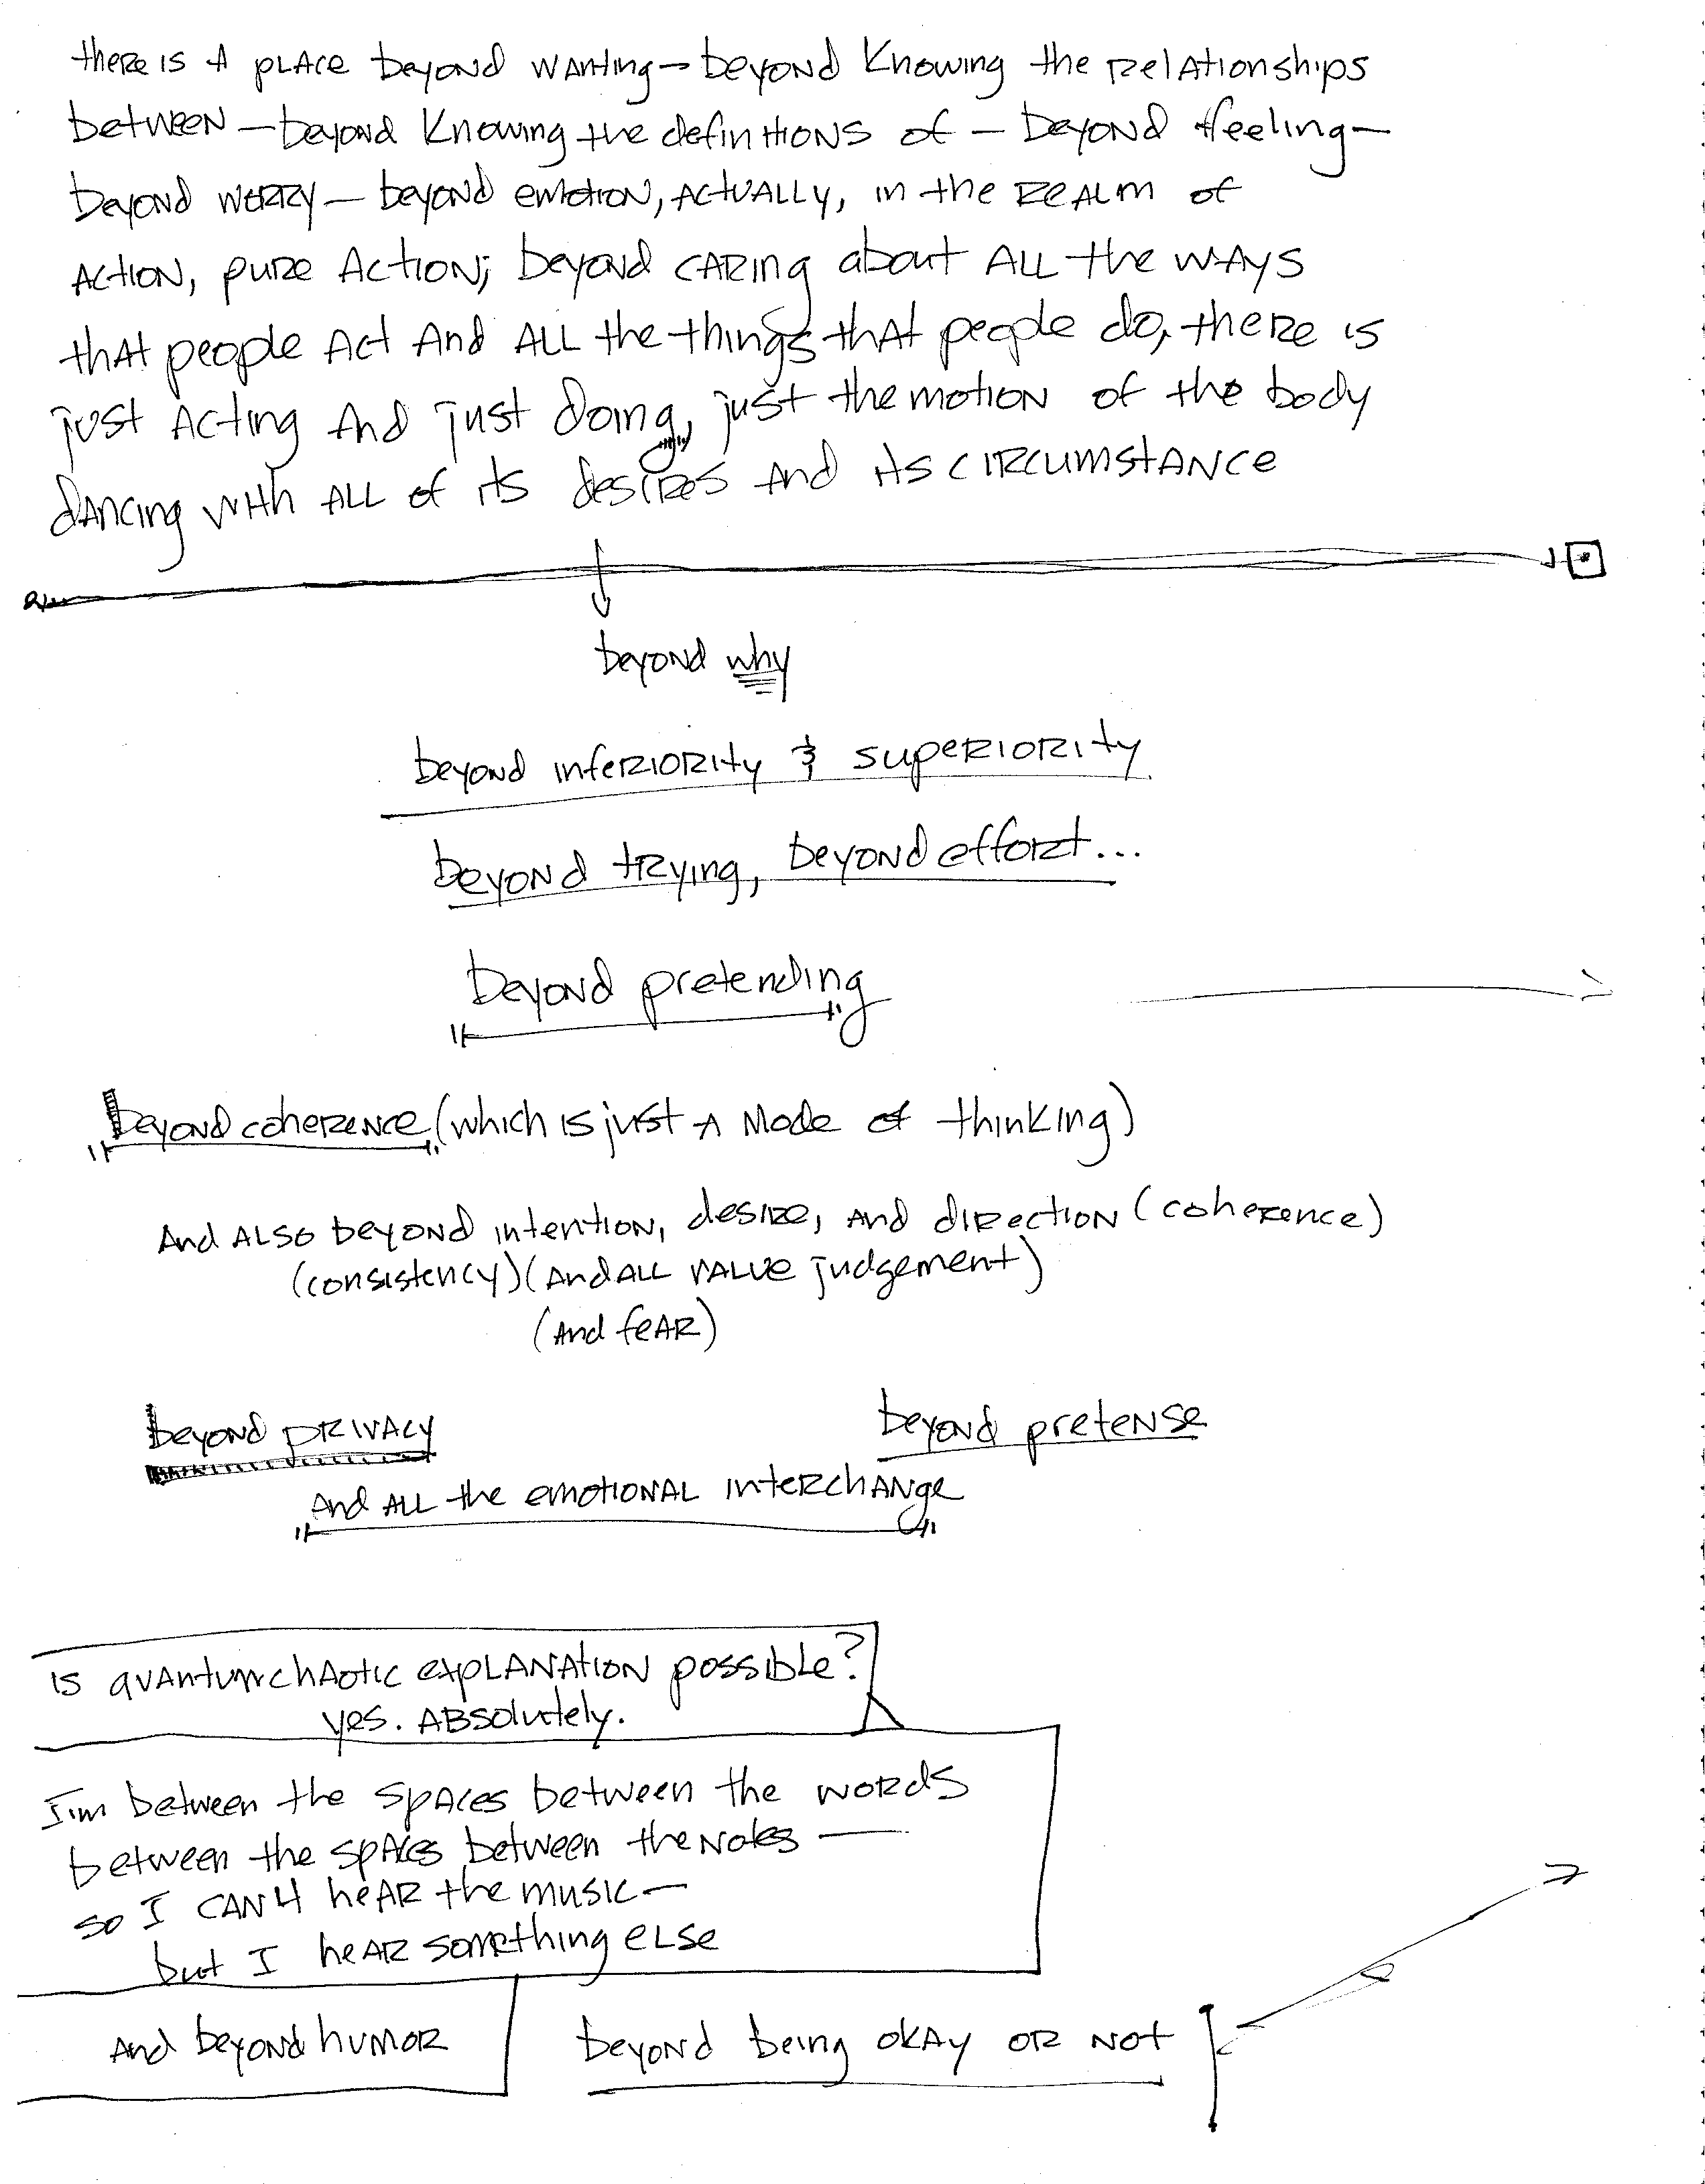 there is A plAce beyond wAnting— beyond Knowing the RelAtionships
between — beyond Knowing the definitions of — beyond feeling—
beyond worry — beyond emotion, ActuAlly, in the ReAlm of
Action, pure Action; beyond cARing about ALL the wAys
thAt people Act And ALL the things thAt people do, there is
just Acting And just doing, just the motion of the body
dAncing with ALL of its desires And its circumstAnce
beyond why
beyond inferiority & superiority
beyond trying, beyond effort...
beyond pretending
beyond coherence (which is just A Mode of thinking)
And ALSO beyond intention, desire, And direction (coherence)
(consistency) (And ALL vAlue judgement)
(And feAR)
beyond privAcy
beyond pretense
And ALL the emotionAL interchAnge
is quAntum chAotic explAnAtion possible?
yes. ABSolutely.
I'm between the spAces between the words
between the spAces between the Notes —
so I CAN't heAR the music—
but I heAR something eLse
And beyond humor
beyond being okAy or not